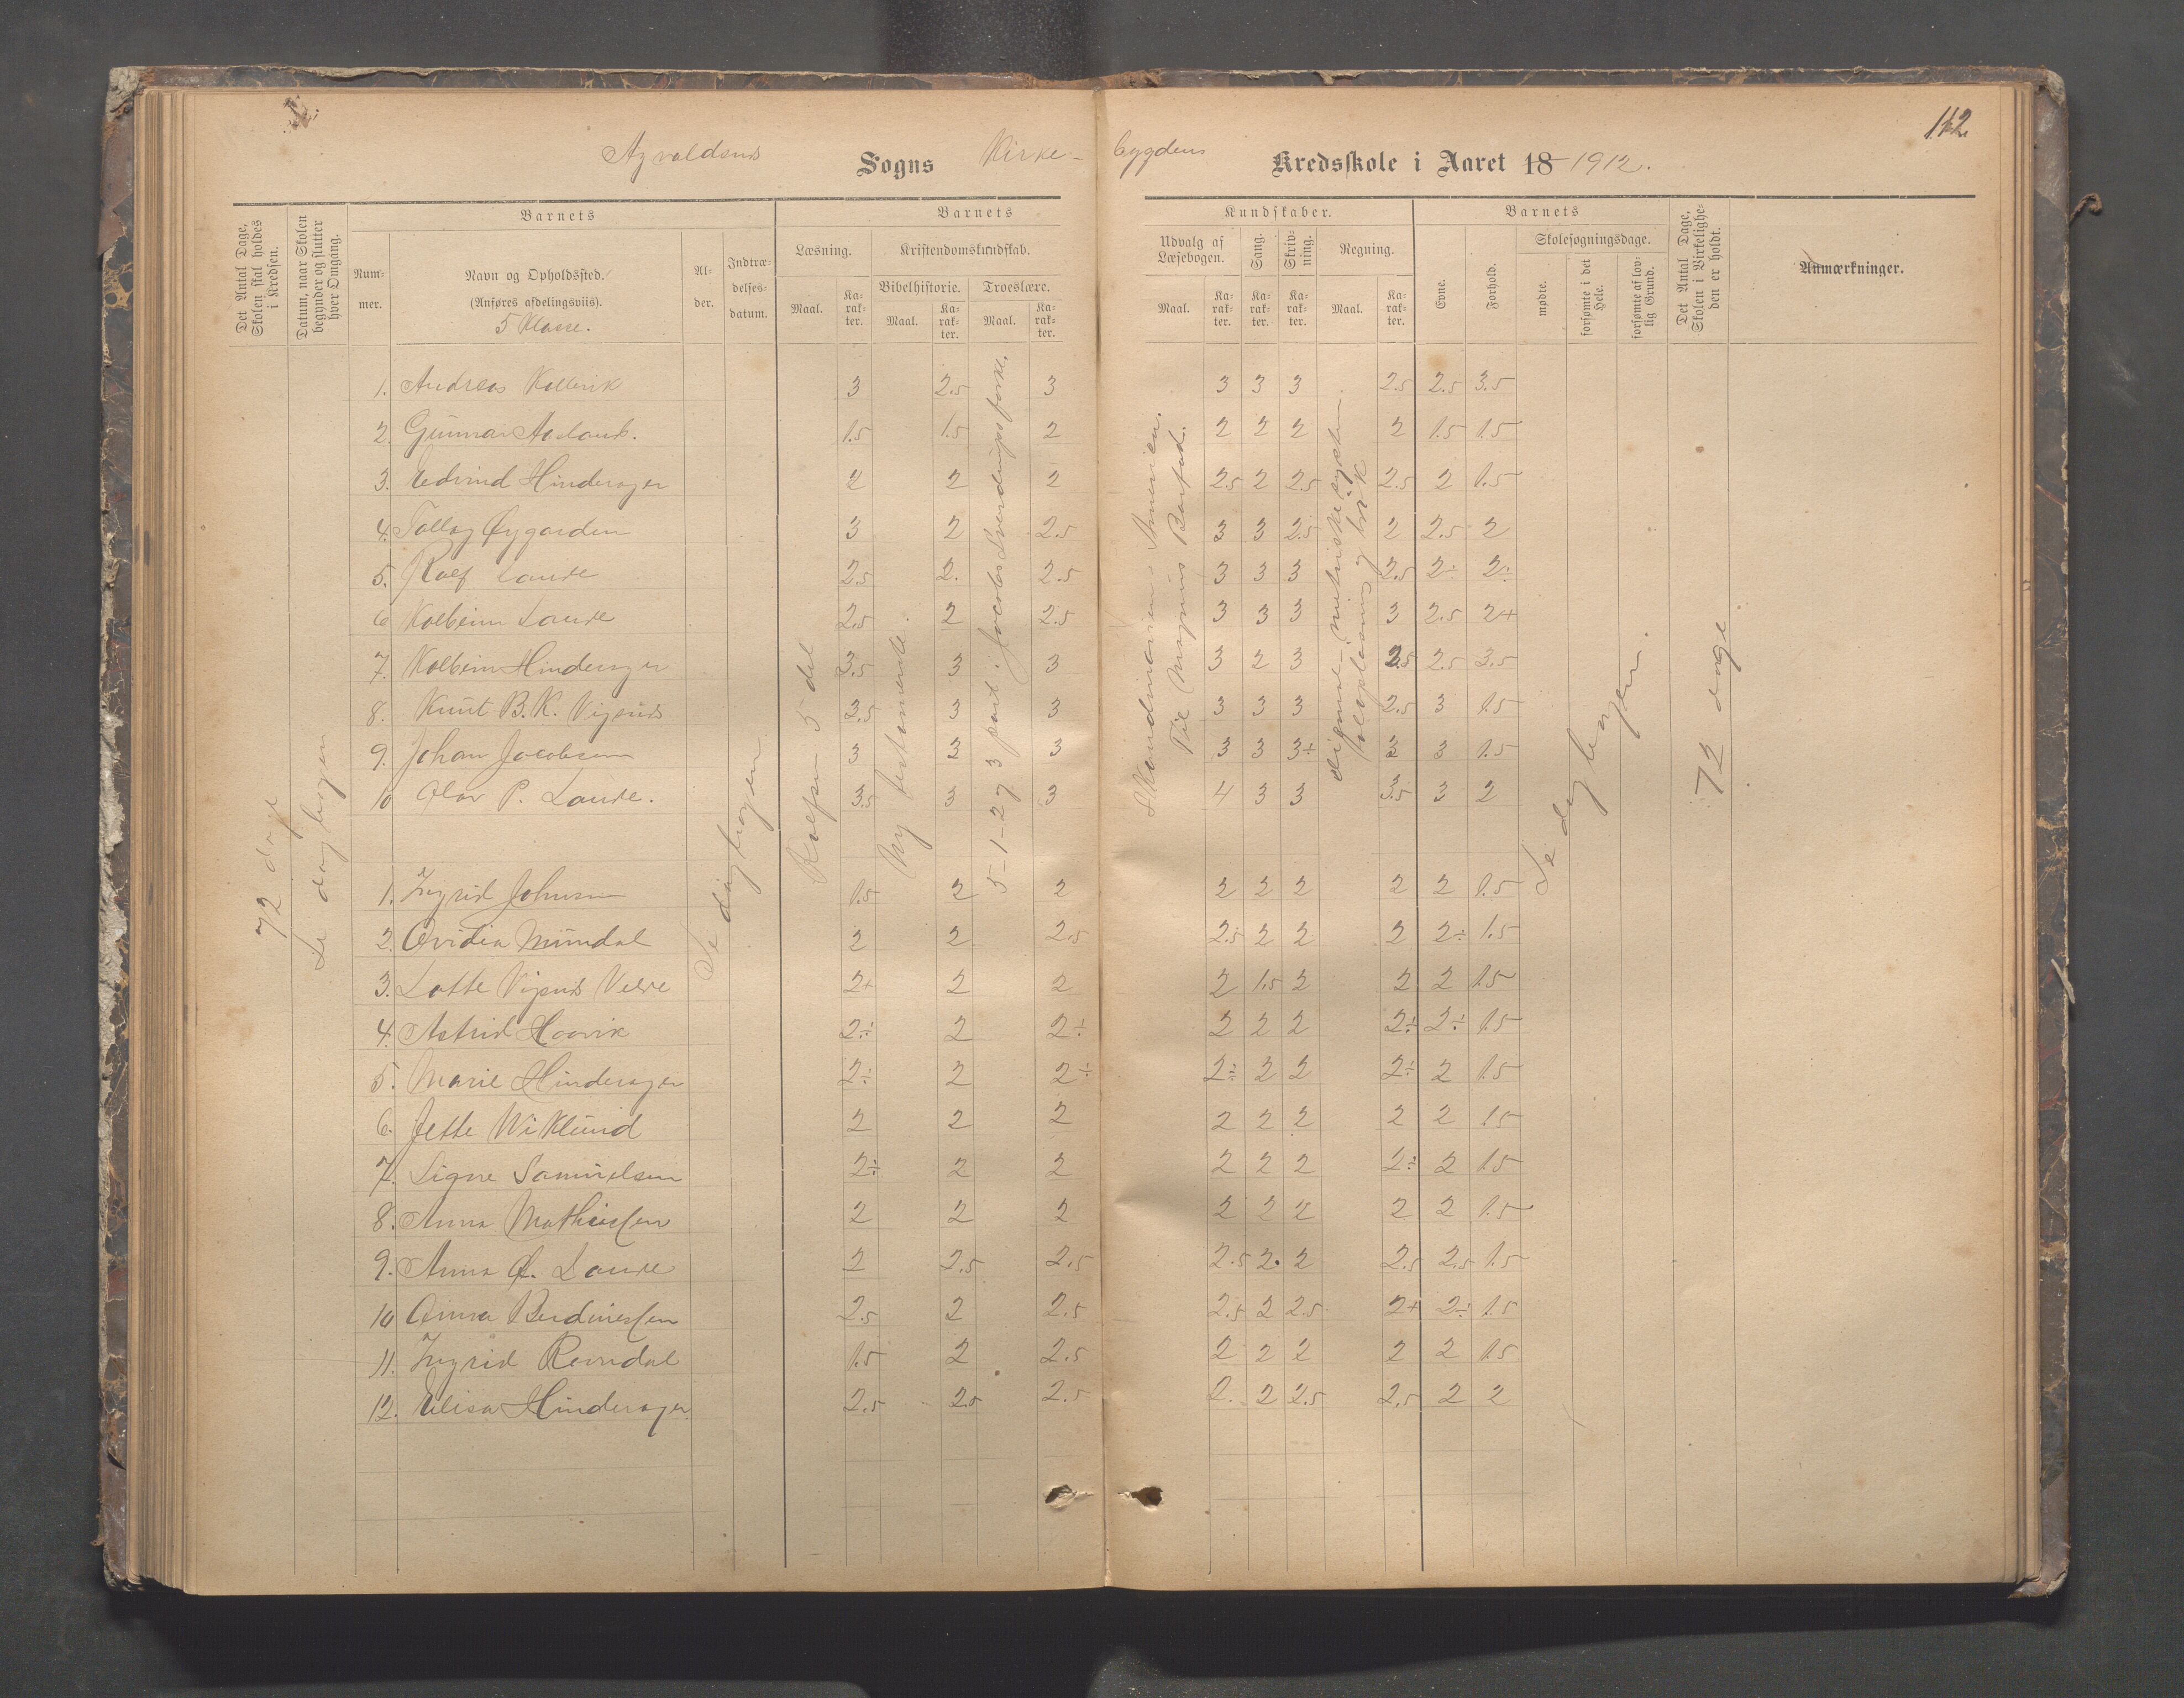 142.
Sogns Kirke- bygdens Kredsskole i Aaret 18 1912.
Det Antal Dage, Skolen skal holdes i Kredsen.
Datum, naar Skolen begynder og slutter hver Omgang.
Barnets
Num-
mer.
Navn og Opholdssted.
(Anføres afdelingsviis).
5 Klasse.
Al-
der.
Indtræ-
delses-
datum.
Barnets
Læsning.
Maal.
Ka-
rak-
ter.
Kristendomskundskab.
Bibelhistorie.
Maal.
Ka-
rak-
ter.
Troeslære.
Maal.
Ka-
rak-
ter.
Kundskaber.
Udvalg af
Læsebogen.
Maal.
Ka-
rak-
ter.
Sang.
Ka-
rak-
ter.
Skriv-
ning.
Ka-
rak-
ter.
Regning.
Maal.
Ka-
rak-
ter.
Barnets
Evne.
Forhold.
Skolesøgningsdage.
mødte.
forsømte i det Hele.
forsømte af lov-
lig Grund.
Det Antal Dage, Skolen i Virkelighe-
den er holdt.
Anmærkninger.
72 dage
Se dagbogen
Se dagbogen
Rolfsen 5 del
Ny testamente.
5-1-2 og 3 part. Jocobs Sverdrups fork.
Til Magnus Barfod.
Se dagbogen.
72 dage
1. Andreas 3 2.5 3 3 3 3 2.5 2.5 3.5
2. Gunnar 1.5 1.5 2 2 2 2 2 1.5 1.5
3. Edvind Hinderager 2 2 2 2.5 2 2.5 2.5 2 1.5
4. Øygarden 3 2 2.5 3 3 2.5 2 2.5 2
5. Rolf Lande 2.5 2. 2.5 3 3 3 2.5 2÷ 2÷
6 Kolbein Lande 2.5 2 2.5 3 3 3 3 2.5 2+
7. Kolbein Hinderager 3.5 3 3 3 2 3 2.5 3.5
8. Knut B.K. Vigsnes 2.5 3 3 3 3 3 2.5 3 1.5
9. Johan Jacobsen 3 3 3 3 3 3÷ 3 3 1.5
10 Olav P. Lande. 3.5 3 3 4 3 3 3.5 3 2
1. Ingrid Johnsen 1.5 2 2 2 2 2 2 2 1.5
2. Ovidia Mundal 2 2 2.5 2.5 2 2 2 2÷ 1.5
3. Lotte Vigsnes Velde 2+ 2 2 2 1.5 2 2 2 1.5
4. Astrid Haavik 2÷ 2 2÷ 2 2 2 2÷ 2÷ 1.5
5. Marie Hinderager 2÷ 2 2÷ 2÷ 2 2 2÷ 2 1.5
6. Jette Wiklund 2 2 2 2 2 2 2 2 15
7. Signe Samuelsen 2÷ 2 2 2 2 2 2÷ 2 1.5
8. Anna Mathiesen 2 2 2 2 2 2 2 2 1.5
9. Anna Lande 2 2.5 2.5 2.5 2. 2 2.5 2.5 1.5
10 Anna 2.5 2 2.5 2.5 2 2.5 2+ 2÷ 1.5
11. Ingrid 1.5 2 2.5 2 2 2 2 2 1.5
12. Elisa Hinderager. 2.5 2.5 2.5 2. 2 2.5 2.5 2 2